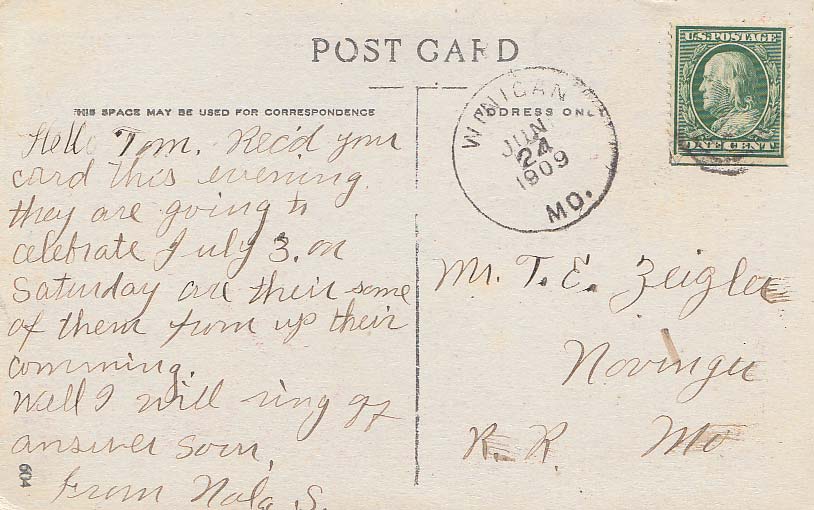 POST CARD
THIS SPACE MAY BE USED FOR CORRESPONDENCE
ADDRESS ONLY
U.S. POSTAGE
ONE CENT
WINIGAN
JUN
24
1909
MO.
Hello Tom. Rec'd your
card this evening.
they are going to
celebrate July 3. on
Saturday are their some
of them from up their
comming.
Well I will ring off
answer soon,
From Nola S.
Mr. T. E. Zeigler
Novinger
R. R. Mo
604